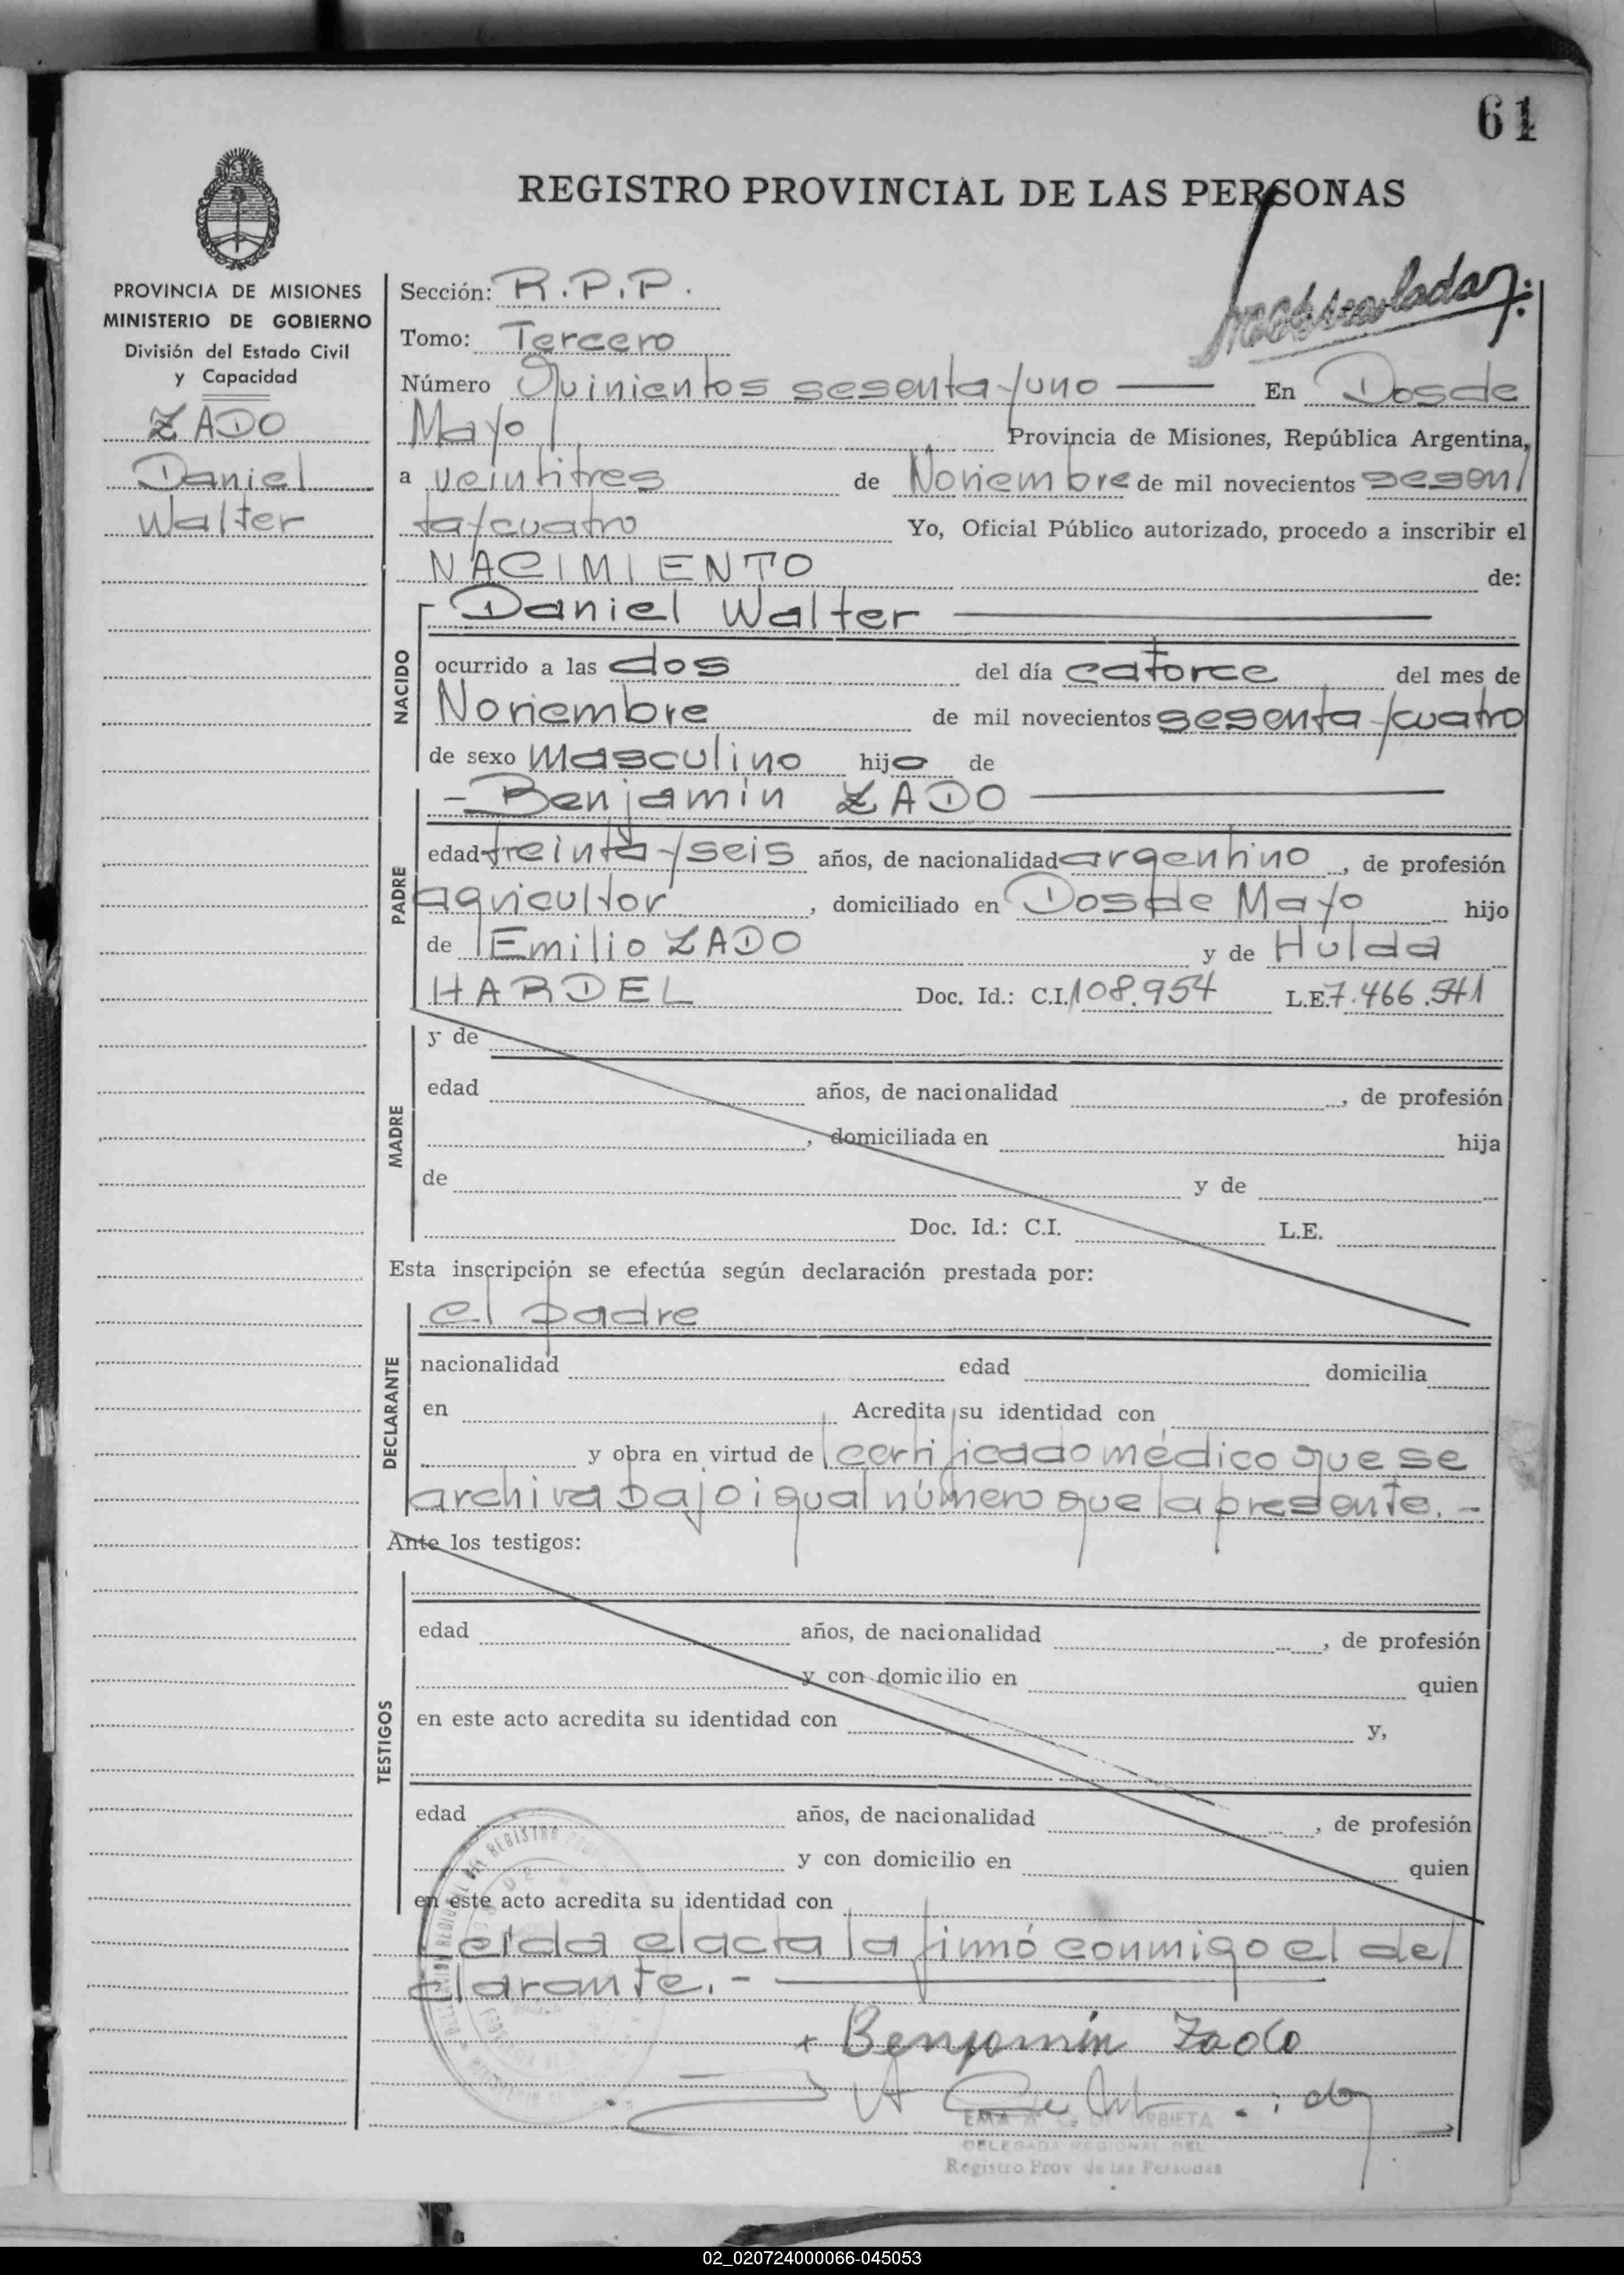 61
REGISTRO PROVINCIAL DE LAS PERSONAS
PROVINCIA DE MISIONES
MINISTERIO DE GOBIERNO
División del Estado Civil
y Capacidad
ZADO
Daniel
Walter
Sección: R.P.P.
Tomo: Tercero
Número Quinientos sesenta y uno — En Dos de
Mayo Provincia de Misiones, República Argentina,
a veintitres de Noviembre de mil novecientos sesen/
ta y cuatro Yo, Oficial Público autorizado, procedo a inscribir el
NACIMIENTO de:
NACIDO
Daniel Walter —
ocurrido a las dos del día catorce del mes de
Noviembre de mil novecientos sesenta y cuatro
de sexo masculino hijo de
PADRE
- Benjamín ZADO —
edad treinta y seis años, de nacionalidad argentino, de profesión
agricultor, domiciliado en Dos de Mayo hijo
de Emilio ZADO y de Hulda
HARDEL Doc. Id.: C.I. 108.954 L.E. 7.466.541
MADRE
y de
edad años, de nacionalidad , de profesión
, domiciliada en hija
de y de
Doc. Id.: C.I. L.E.
Esta inscripción se efectúa según declaración prestada por:
DECLARANTE
el padre
nacionalidad edad domicilia
en Acredita su identidad con
y obra en virtud de certificado médico que se
archiva bajo igual número que la presente.-
Ante los testigos:
TESTIGOS
edad años, de nacionalidad , de profesión
y con domicilio en quien
en este acto acredita su identidad con y,
edad años, de nacionalidad , de profesión
y con domicilio en quien
en este acto acredita su identidad con
Leída el acta la firmó conmigo el de/
clarante.- —
+ Benjamín Zado
EMA A. C. DE URBIETA
DELEGADA REGIONAL DEL
Registro Prov de las Personas
02_020724000066-045053